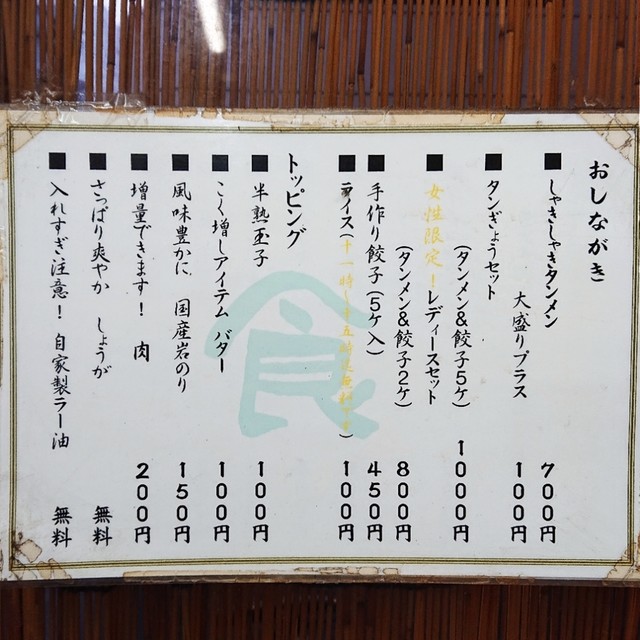 おしながき
■ しゃきしゃきタンメン 700円
大盛りプラス 100円
■ タンぎょうセット
(タンメン&餃子5ケ) 1000円
■ 女性限定!レディースセット
(タンメン&餃子2ケ) 800円
■ 手作り餃子(5ケ入) 450円
■ ライス(十一時〜十五時迄無料です) 100円
トッピング
■ 半熟玉子 100円
■ こく増しアイテム バター 100円
■ 風味豊かに 国産岩のり 150円
■ 増量できます! 肉 200円
■ さっぱり爽やか しょうが 無料
■ 入れすぎ注意! 自家製ラー油 無料
食